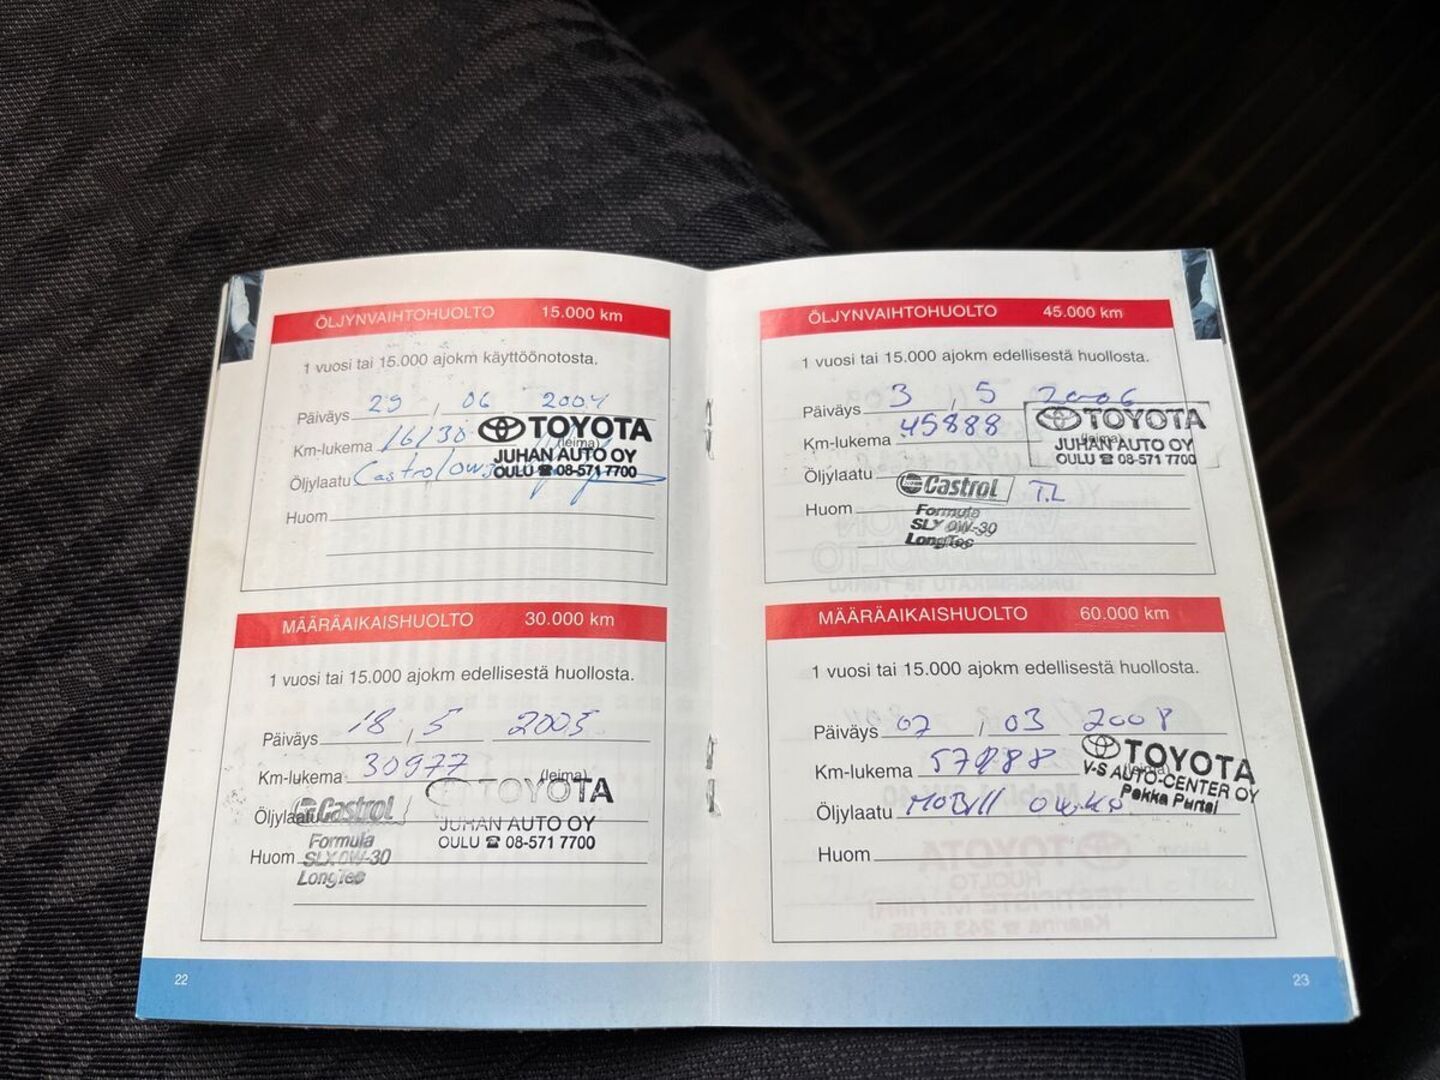 ÖLJYNVAIHTOHUOLTO 15.000 km
1 vuosi tai 15.000 ajokm käyttöönotosta.
Päiväys 29 , 06 2004
Km-lukema 16130
(leima)
TOYOTA
JUHAN AUTO OY
OULU ☎ 08-571 7700
Öljylaatu Castrol
Huom
MÄÄRÄAIKAISHUOLTO 30.000 km
1 vuosi tai 15.000 ajokm edellisestä huollosta.
Päiväys 18 , 5 2005
Km-lukema 30977
(leima)
TOYOTA
JUHAN AUTO OY
OULU ☎ 08-571 7700
Öljylaatu Castrol
Formula
Huom SLX 0W-30
LongTec
22
ÖLJYNVAIHTOHUOLTO 45.000 km
1 vuosi tai 15.000 ajokm edellisestä huollosta.
Päiväys 3 , 5 2006
Km-lukema 45888
(leima)
TOYOTA
JUHAN AUTO OY
OULU ☎ 08-571 7700
Öljylaatu Castrol T.L
Huom Formula
SLX 0W-30
LongTec
MÄÄRÄAIKAISHUOLTO 60.000 km
1 vuosi tai 15.000 ajokm edellisestä huollosta.
Päiväys 07 , 03 2008
Km-lukema
(leima)
TOYOTA
V-S AUTO-CENTER OY
Pekka Purtsi
Öljylaatu
Huom
23